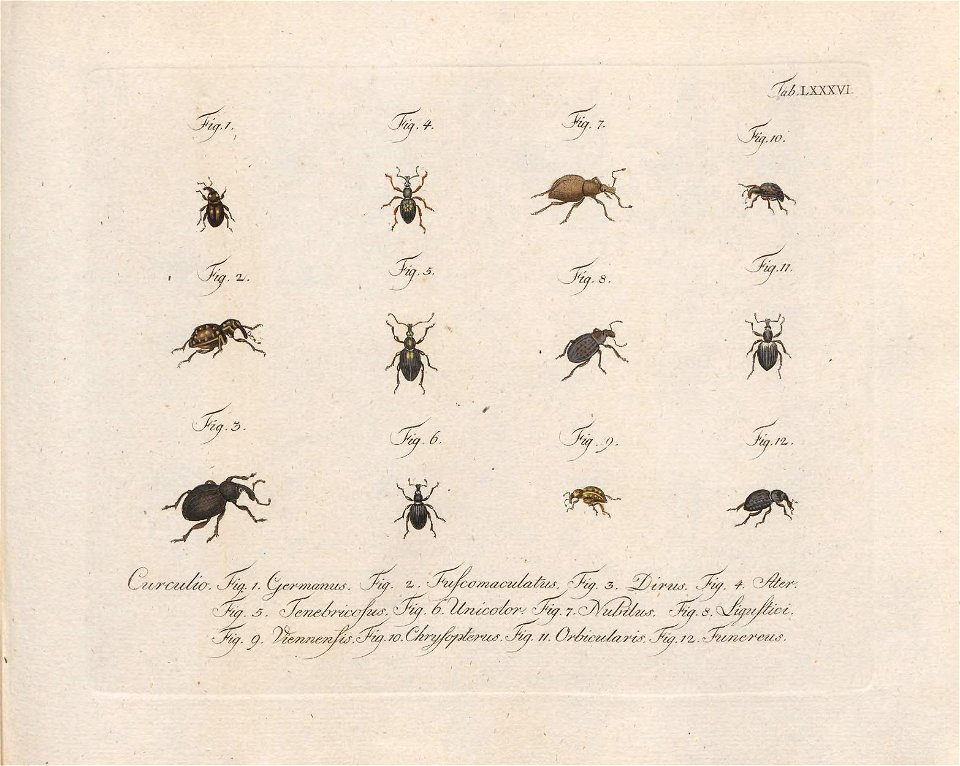 Tab. LXXXVI.
Fig. 1. Fig. 4. Fig. 7. Fig. 10.
Fig. 2. Fig. 5. Fig. 8. Fig. 11.
Fig. 3. Fig. 6. Fig. 9. Fig. 12.
Curculio. Fig. 1. Germanus. Fig. 2. Fuſcomaculatus. Fig. 3. Dirus. Fig. 4. Ater.
Fig. 5. Tenebricoſus. Fig. 6. Unicolor. Fig. 7. Nubilus. Fig. 8. Liguſtici.
Fig. 9. Viennenſis. Fig. 10. Chryſopterus. Fig. 11. Orbicularis. Fig. 12. Funereus.